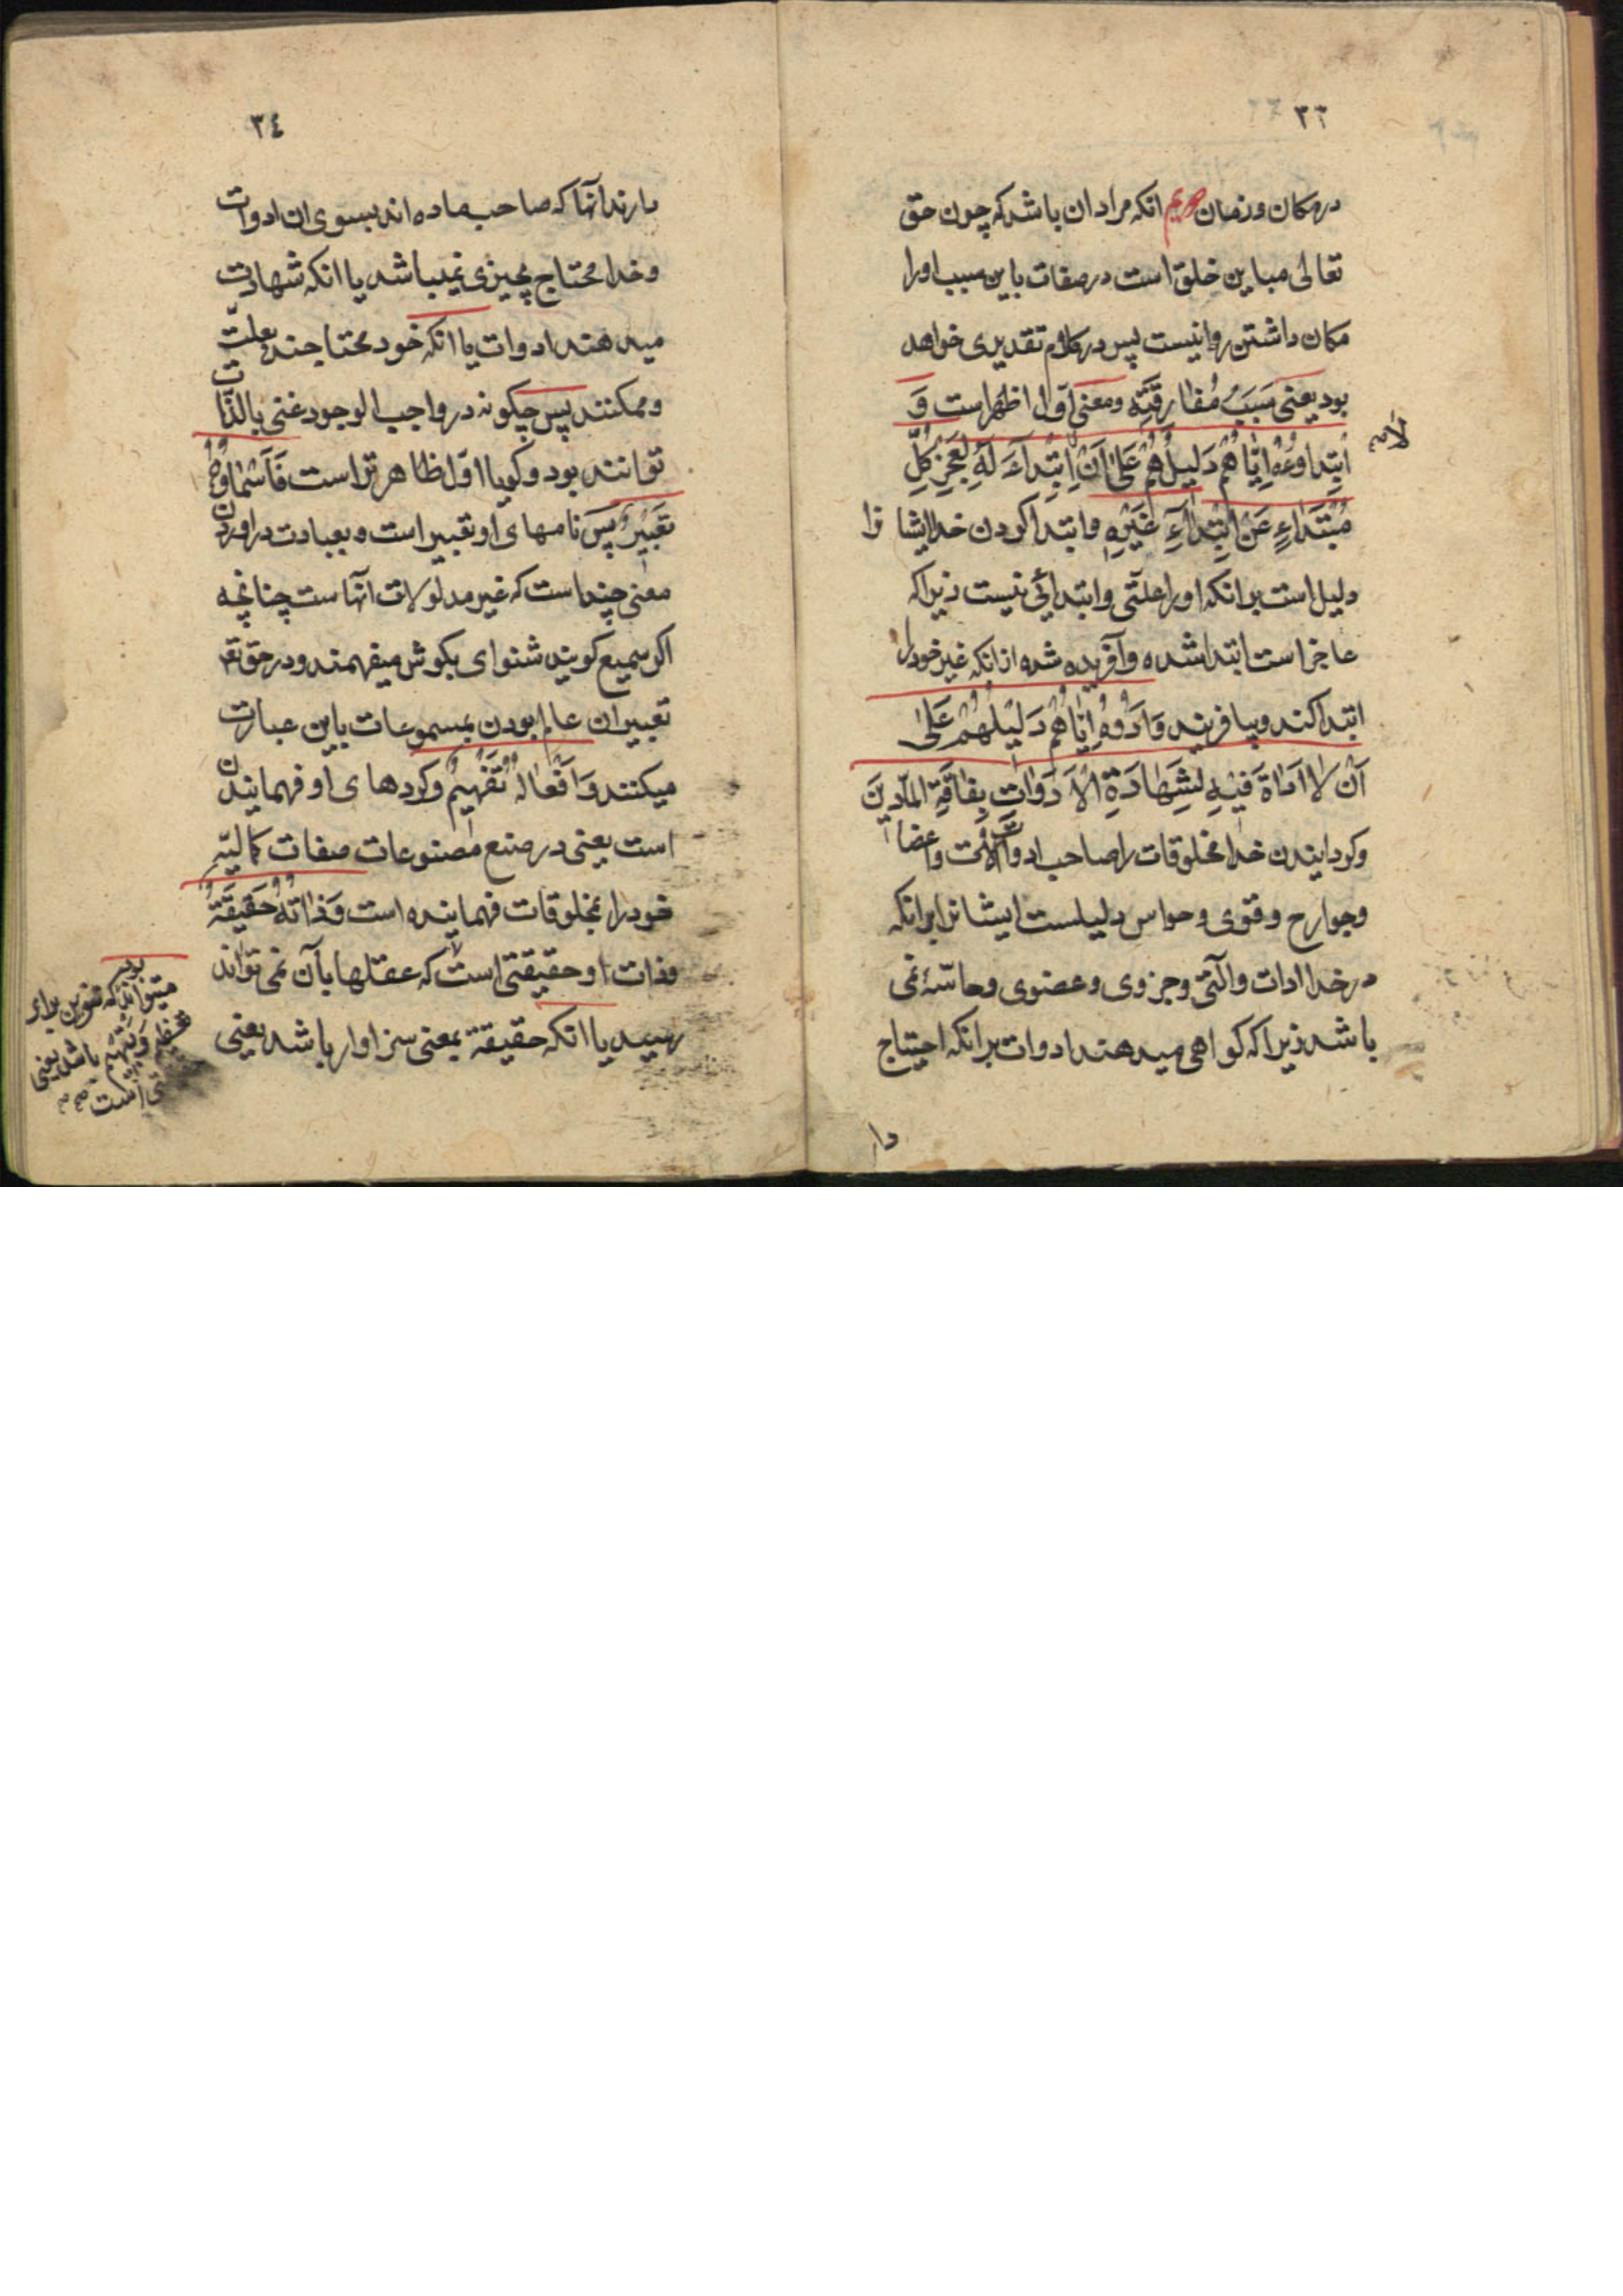 ۳۳
در مکان و زمان سیم انکه مراد ان باشد که چون حق
تعالی مباین خلق است در صفات باین سبب او را
مکان داشتن روا نیست پس در کلام تقدیری خواهد
بود یعنی سَبَبُ مُفٰارِقَتِه و معنی اوّل اظهر است وَ
اِبْتِداوُهُ اِیّٰاهُمْ دَلیلُهُمْ عَلیٰ اَنْ لا اِبْتِداءَ لَهُ لِعَجْزِ کُلِّ
مُبْتَداءٍ عَنْ ابْتِداءِ غَیْرِهِ و ابتدا کردن خدا ایشا نرا
دلیل است بر انکه او را علّتی و ابتدائی نیست زیرا که
عاجز است ابتدا شده و آفریده شده از انکه غیر خود را
ابتدا کند و بیافریند وَ اَدْوُهُ اِیّٰاهُمْ دَلیٖلُهُمْ عَلیٰ
اَنْ لا اَداةَ فیٖهِ لِشَهٰادَةِ الْاَدَوٰاتِ بِفٰاقَةِ المٰآدّینَ
و کردانیدن خدا مخلوقات را صاحب ادوات و آلت و اعضا
و جوارح و قوی و حواس دلیلست ایشانرا بر انکه
در خدا ادات و آلتی و جزوی و عضوی و حاسّهٔ نمی
باشد زیرا که کواهی میدهند ادوات بر انکه احتیاج
دا
۳٤
دارند آنها که صاحب ماده اند بسوی ان ادوات
و خدا محتاج بچیزی نمیباشد یا انکه شهادت
میدهند ادوات یا انکه خود محتاجند بعلّت
و ممکنند پس چکونه در واجب الوجود غنی بالذّات
توانند بود و کویا اوّل ظاهر تر است فَاَسْمٰاوُهُ
تَعْبیٖرٌ پس نامهای او تعبیر است و بعبادت در اوردن
معنی چند است که غیر مدلولات آنهاست چنانچه
اکر سمیع کویند شنوای بکوش میفهمند و در حق تع
تعبیر ان عالم بودن بمسموعات باین عبارت
میکنند وَ اَفْعٰالُهُ تَفْهیٖمٌ و کردهای او فهمانیدن
است یعنی در صنع مصنوعات صفات کمالیّه
خود را بمخلوقات فهمانیده است وَ ذٰاتُهُ حَقیٖقَةٌ
و ذات او حقیقتی است که عقلها بآن نمی تواند
رسید یا انکه حقیقة بمعنی سزاوار باشد یعنی
میتواند بود که تنوین برای
تعظیم و تفهیم باشد یعنی